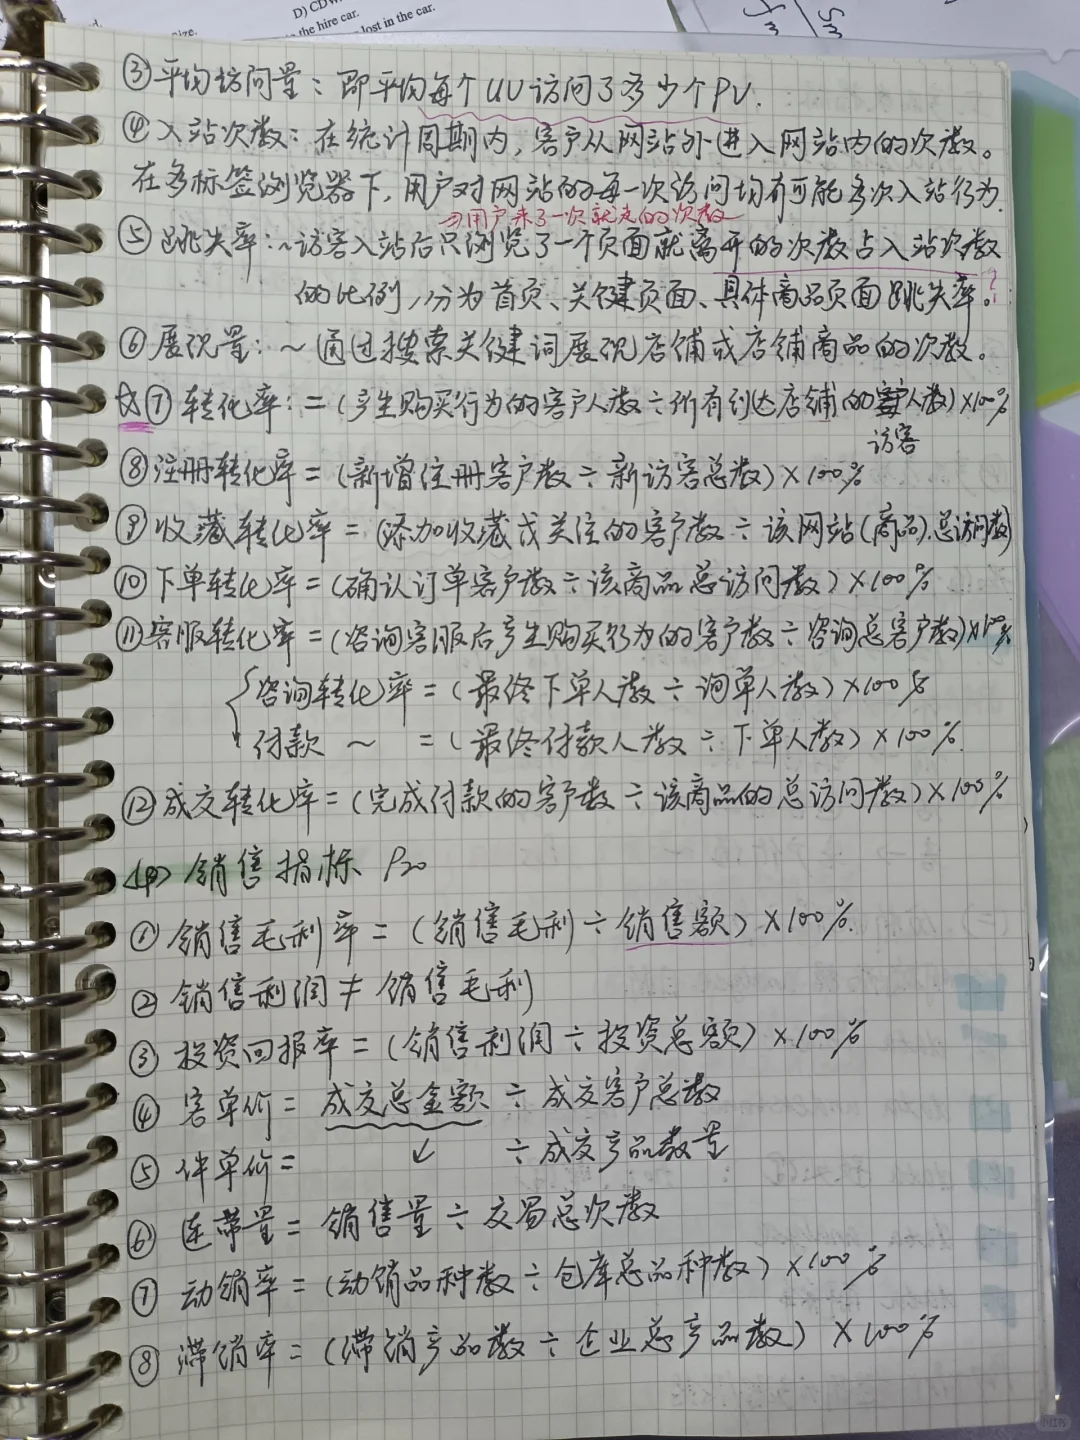 D) CDW
the hire car.
lost in the car.
③平均访问量：即平均每个UV访问了多少个PV.
④入站次数：在统计周期内，客户从网站外进入网站内的次数。
在多标签浏览器下，用户对网站的每一次访问均有可能多次入站行为.
用户来了一次就走的次数
⑤跳失率：~访客入站后只浏览了一个页面就离开的次数占入站次数
的比例，分为首页、关键页面、具体商品页面跳失率。
⑥展现量：~通过搜索关键词展现店铺或店铺商品的次数。
⑦转化率：=(产生购买行为的客户人数÷所有到达店铺的客户人数)×100%
访客
⑧注册转化率=(新增注册客户数÷新访客总数)×100%
⑨收藏转化率=(添加收藏或关注的客户数÷该网站(商品).总访问数)
⑩下单转化率=(确认订单客户数÷该商品总访问数)×100%
⑪客服转化率=(咨询客服后产生购买行为的客户数÷咨询总客户数)×100%
咨询转化率=(最终下单人数÷询单人数)×100%
付款~=(最终付款人数÷下单人数)×100%.
⑫成交转化率=(完成付款的客户数÷该商品的总访问数)×100%
<四>销售指标 P20
①销售毛利率=(销售毛利÷销售额)×100%.
②销售利润≠销售毛利
③投资回报率=(销售利润÷投资总额)×100%
④客单价=成交总金额÷成交客户总数
⑤件单价= ↙ ÷成交产品数量
⑥连带量=销售量÷交易总次数
⑦动销率=(动销品种数÷仓库总品种数)×100%
⑧滞销率=(滞销产品数÷企业总产品数)×100%
小红书